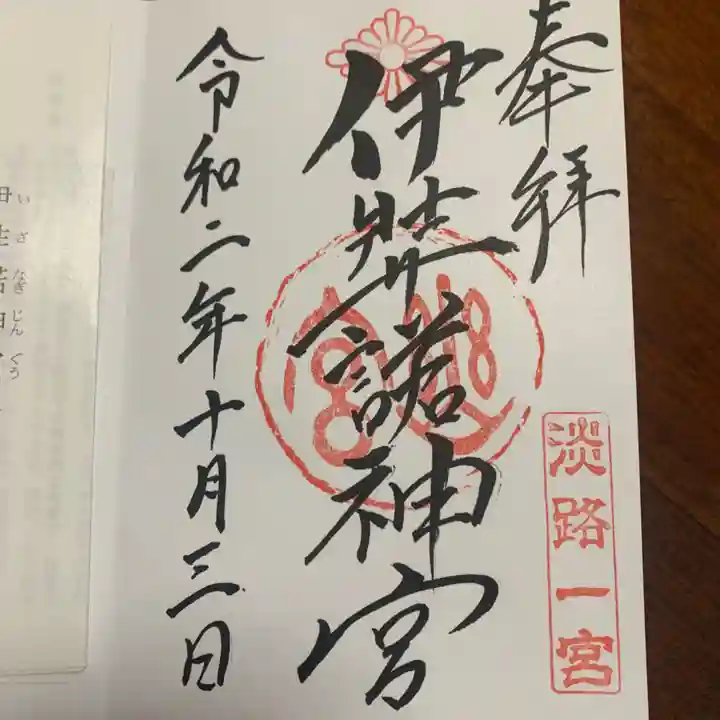 奉拝
淡路一宮
伊弉諾神宮
令和二年十月三日
いざなぎじんぐう